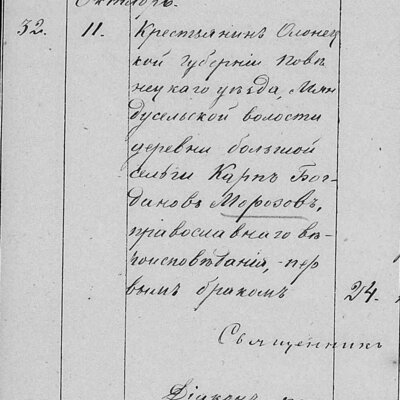 Октябрь.
32. 11. Крестьянинъ Олонец
кой губерніи Повѣ
нецкаго уѣзда, Мян
дусельской волости
деревни большой
сельги Карпъ Бог-
дановъ Морозовъ,
православнаго вѣ-
роисповѣданія, пер
вымъ бракомъ 24.
Священникъ
Діаконъ